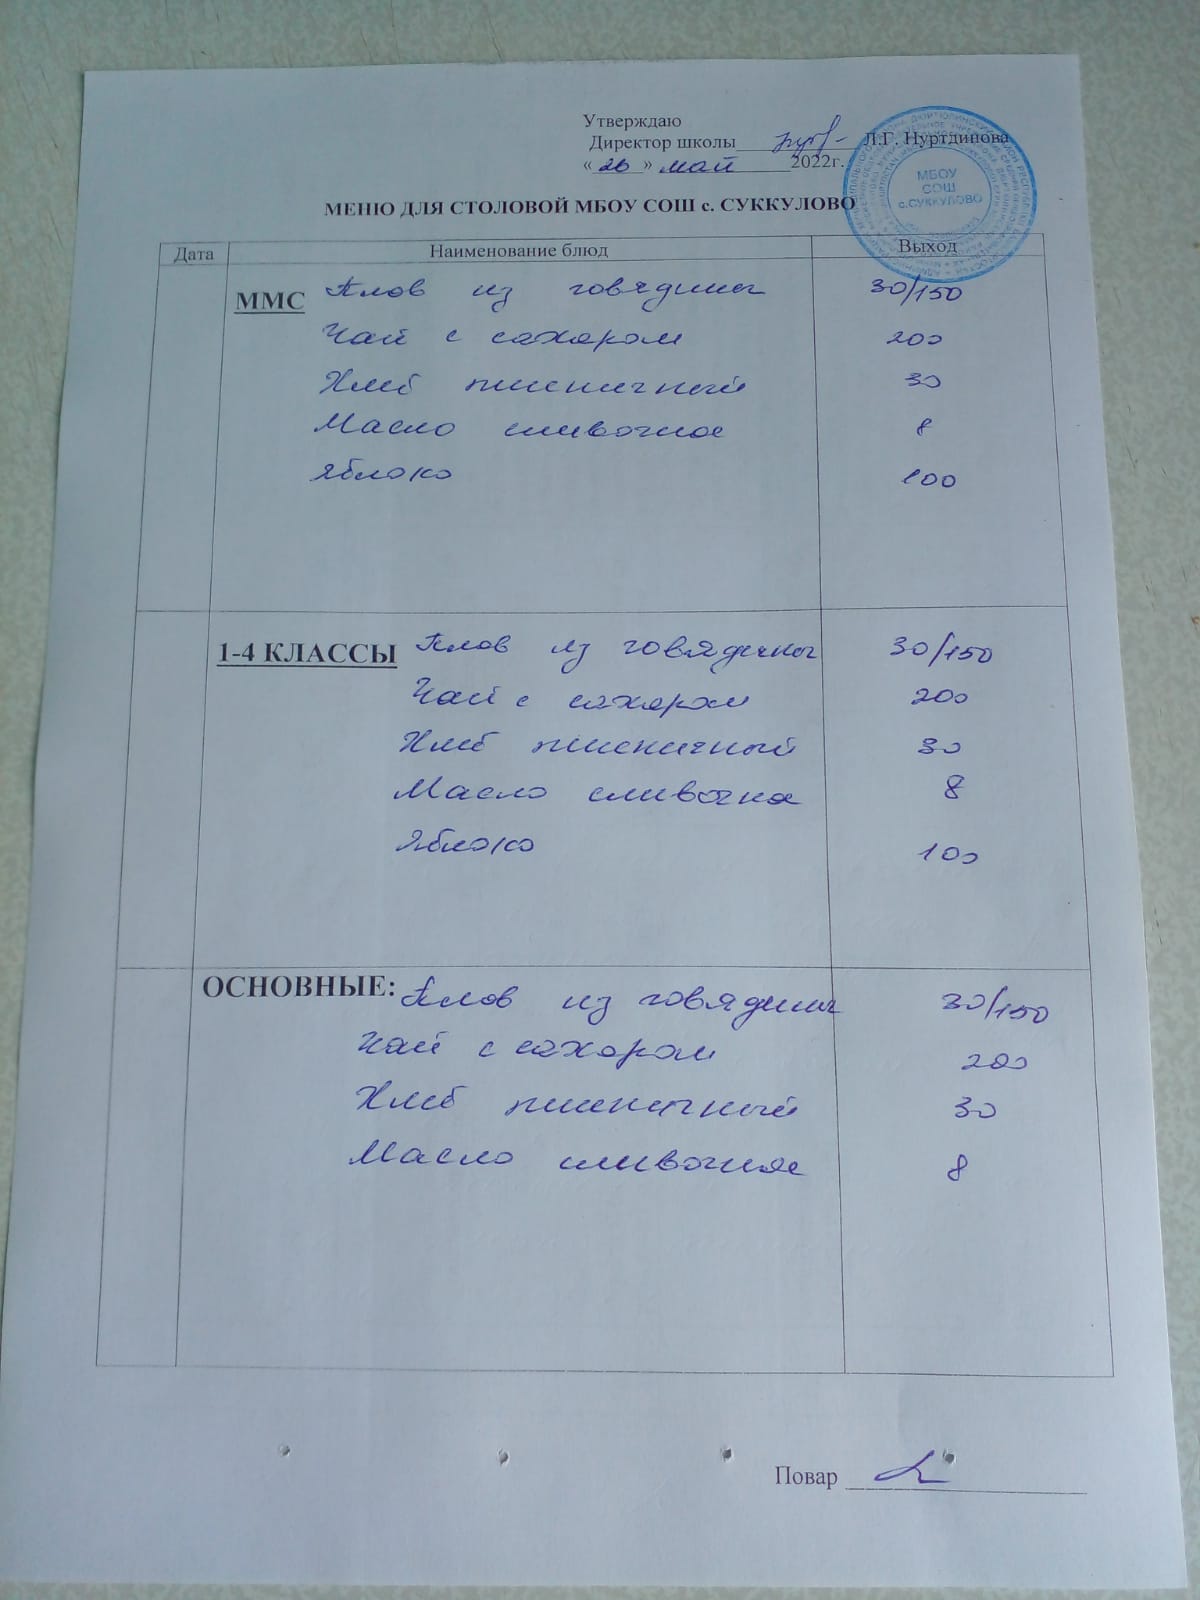 Утверждаю
Директор школы Л.Г. Нуртдинова
« 26 » май 2022г.
МБОУ
СОШ
с.СУККУЛОВО
МЕНЮ ДЛЯ СТОЛОВОЙ МБОУ СОШ с. СУККУЛОВО
Дата Наименование блюд Выход
ММС Плов из говядины 30/150
Чай с сахаром 200
Хлеб пшеничный 30
Масло сливочное 8
Яблоко 100
1-4 КЛАССЫ Плов из говядины 30/150
Чай с сахаром 200
Хлеб пшеничный 30
Масло сливочное 8
Яблоко 100
ОСНОВНЫЕ: Плов из говядины 30/150
Чай с сахаром 200
Хлеб пшеничный 30
Масло сливочное 8
Повар